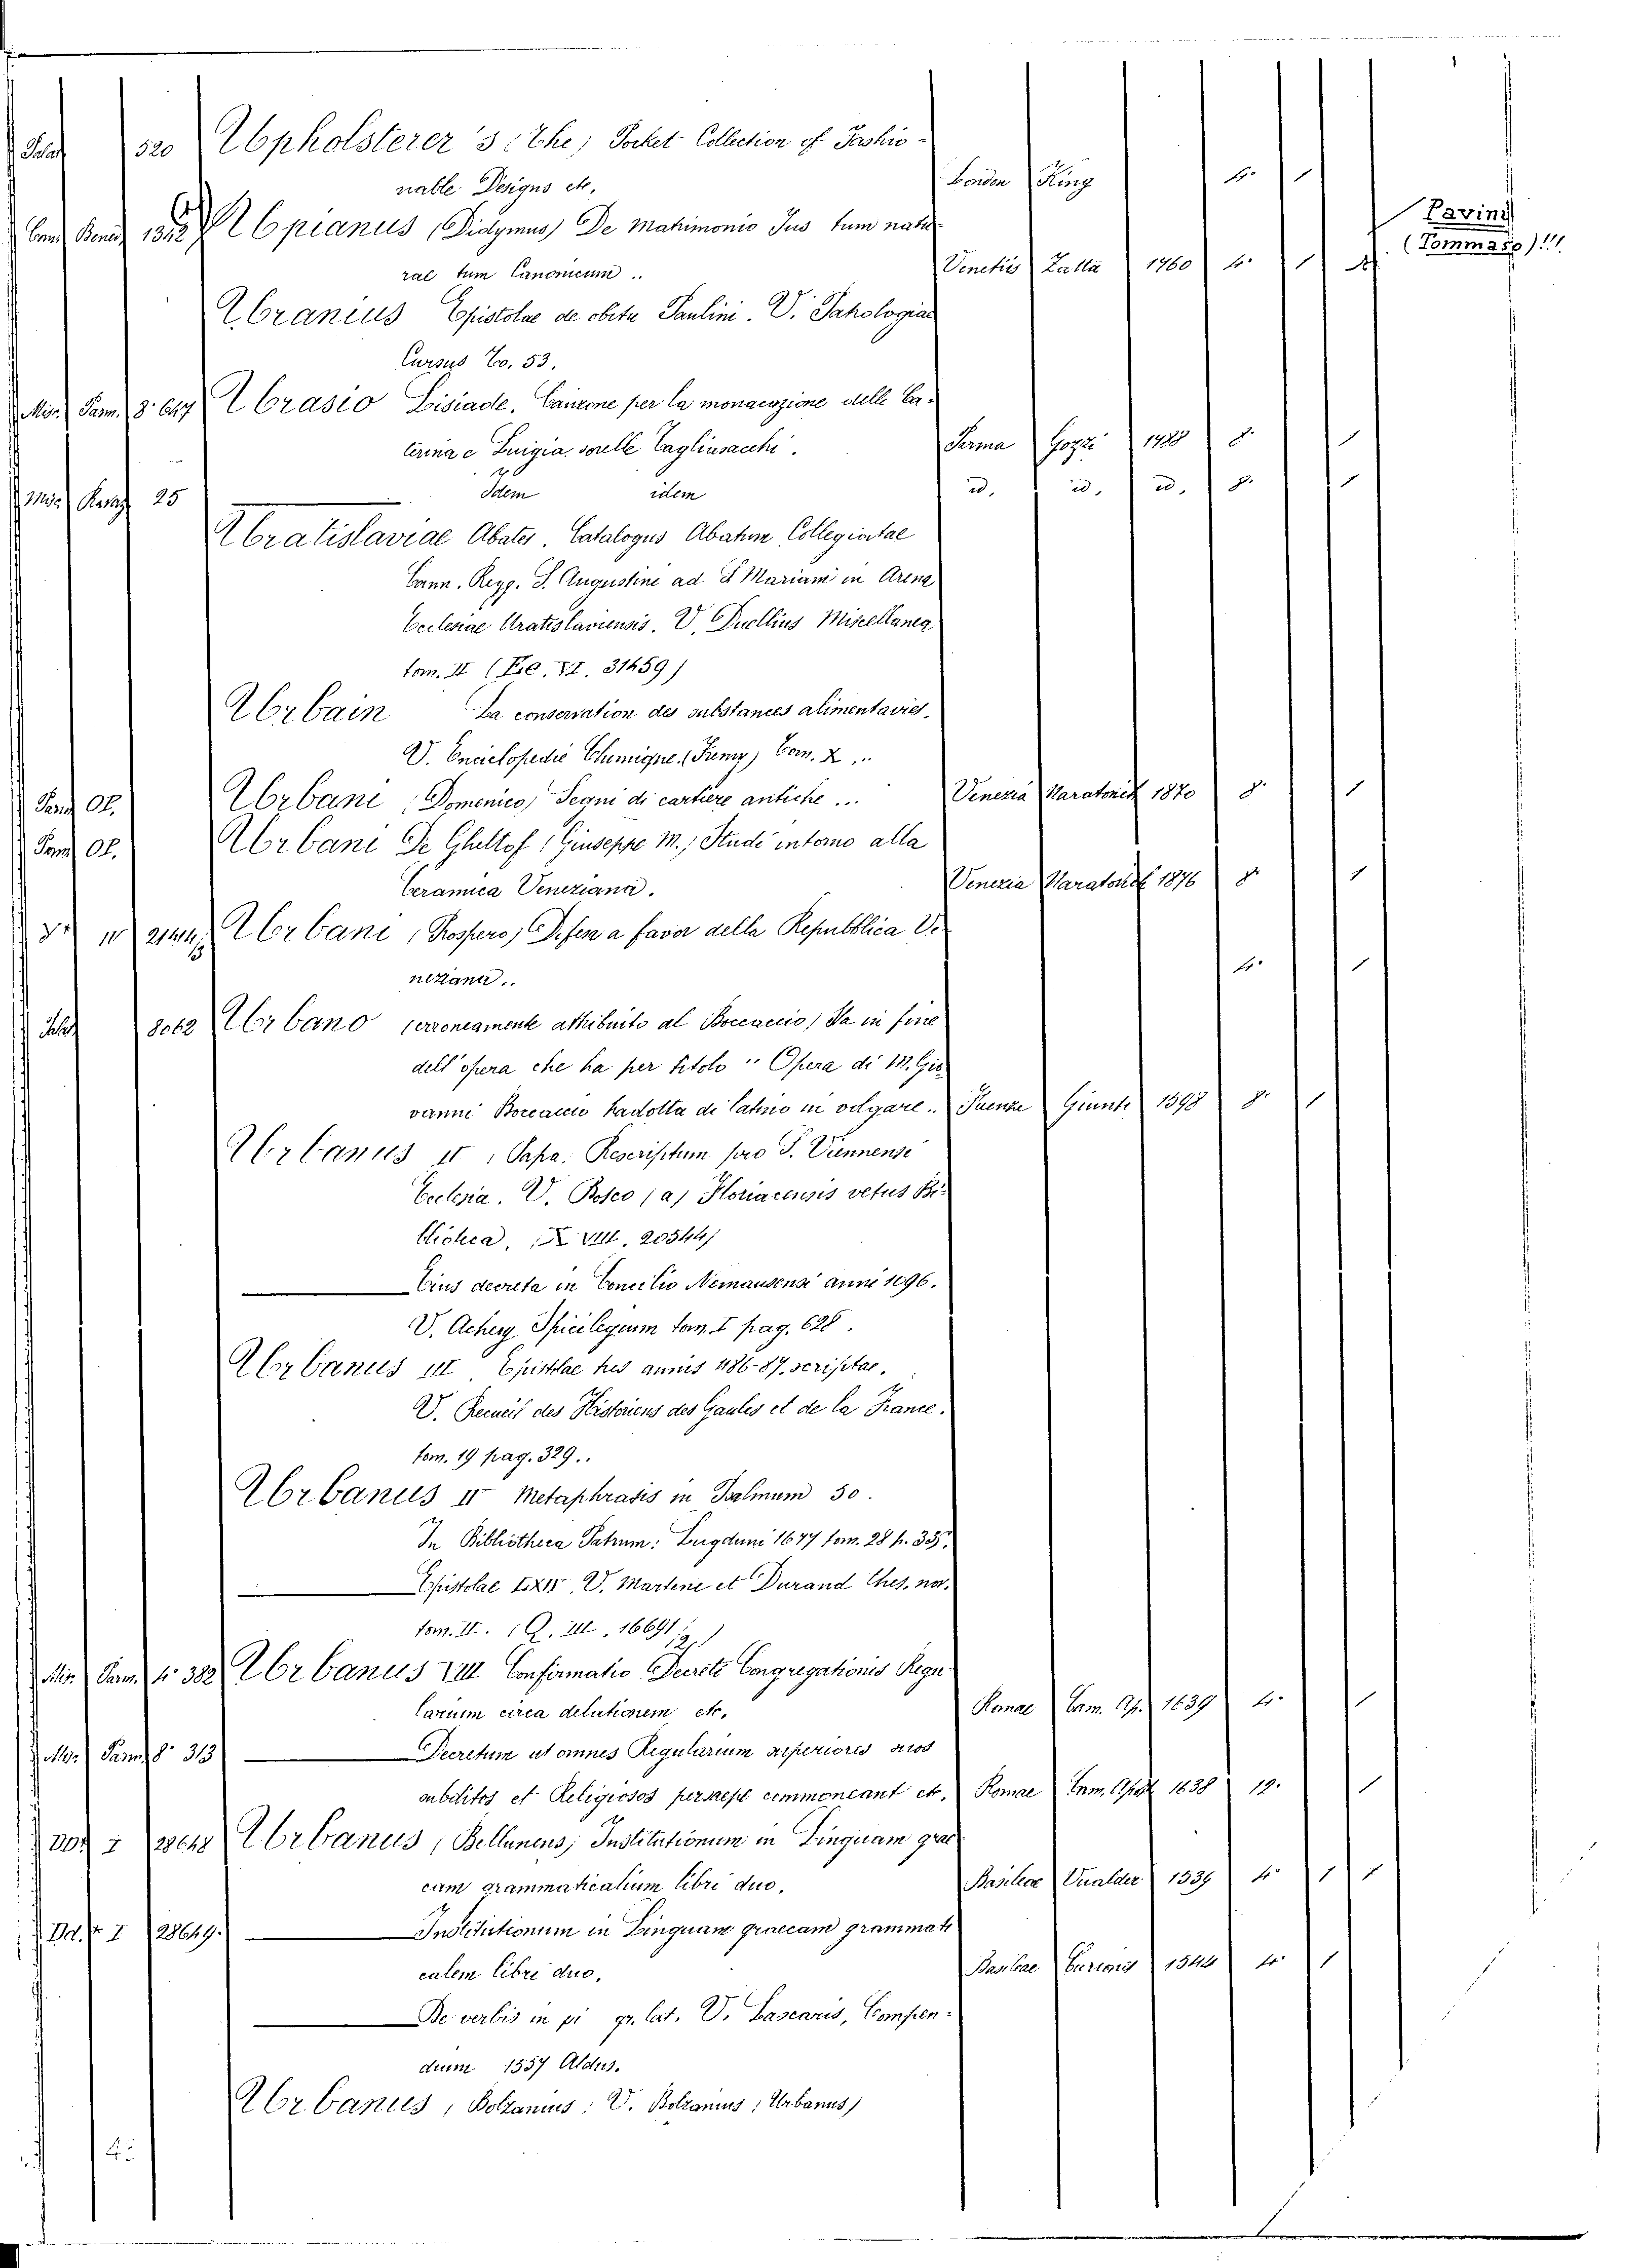 Palat 520 Upholsterer's (The) Pocket Collection of Fashio-
nable Designs etc. London King 4. 1
Pavini
Upianus (Didymus) De Matrimonio Jus tum natu-
(Tommaso)!!!
ral tum Canonicum .. Venetiis Zatta 1760 4. 1
Uranius Epistolae de obitu Paulini. V. Patrologiae
Cursus To. 53.
Misc. Parm. 8. 647 Urasio Lisiade. Canzone per la monacazione delle Ca-
terina e Luigia sorelle Tagliasacchi. Parma Gozzi 1788 8. 1
Misc. 25 Idem idem id. id. id. 8. 1
Uratislaviae Abates. Catalogus Abatum Collegiatae
Cann. Regg. S. Augustini ad S Mariam in Arena
Ecclesiae Uratislaviensis. V. Duellius Miscellanea
tom. II ( VI. 31459)
Urbain La conservation des substances alimentaries.
V. Enciclopedie Chimique (Fremy) Tom. X ..
Parm OP. Urbani (Domenico) Segni di cartiere antiche ... Venezia Naratovich 1870 8. 1
Parm OP. Urbani De Gheltof (Giuseppe M.) Studi intorno alla
Ceramica Veneziana. Venezia Naratovich 1876 8. 1
Urbani (Prospero) Difesa a favor della Repubblica Ve-
neziana.. 4. 1
Palat 8062 Urbano (erroneamente attribuito al Boccaccio) Sta in fine
dell'opera che ha per titolo "Opera di M. Gio-
vanni Boccaccio tradotta di latino in volgare.. Firenze Giunti 1598 8. 1
Urbanus II, Papa. Rescriptum pro S. Viennensi
Ecclesia. V. Bosco (a) Floriacensis vetus Bi-
bliotheca, X VIII. 20544)
Eius decreta in Concilio Nemausensi anni 1096.
V. Achery Spicilegium tom. I pag. 628.
Urbanus III Epistolae tres annis 1186-87. scriptae.
V. Recueil des Historiens des Gaules et de la France.
tom. 19 pag. 329..
Urbanus IV Metaphrasis in Psalmum 50.
In Bibliotheca Patrum: Lugduni 1677 tom. 28 p. 335.
Epistolae LXIV. V. Martene et Durand Thes. nov.
tom. II. (Q. III. 16691/2)
Misc. Parm. 4. 382 Urbanus VIII Confirmatio Decreti Congregationis Regu-
larium circa delationem etc. Romae Cam. Ap. 1639 4. 1
Misc. Parm. 8. 313 Decretum ut omnes Regularium superiores suos
subditos et Religiosos persaepe commoneant etc. Romae Cam. Apost. 1638 12. 1
DD. I 28648 Urbanus (Bellunens) Institutionum in Linguam grae-
cam grammaticalium libri duo. Basileae Vualder 1539 4. 1 1
Dd. I 28649. Institutionum in Linguam graecam grammati-
calem libri duo. Basileae Curionis 1544 4. 1
De verbis in μι gr. lat. V. Lascaris, Compen-
dium 1557 Aldus.
Urbanus, Bolzanius; V. Bolzanius (Urbanus)